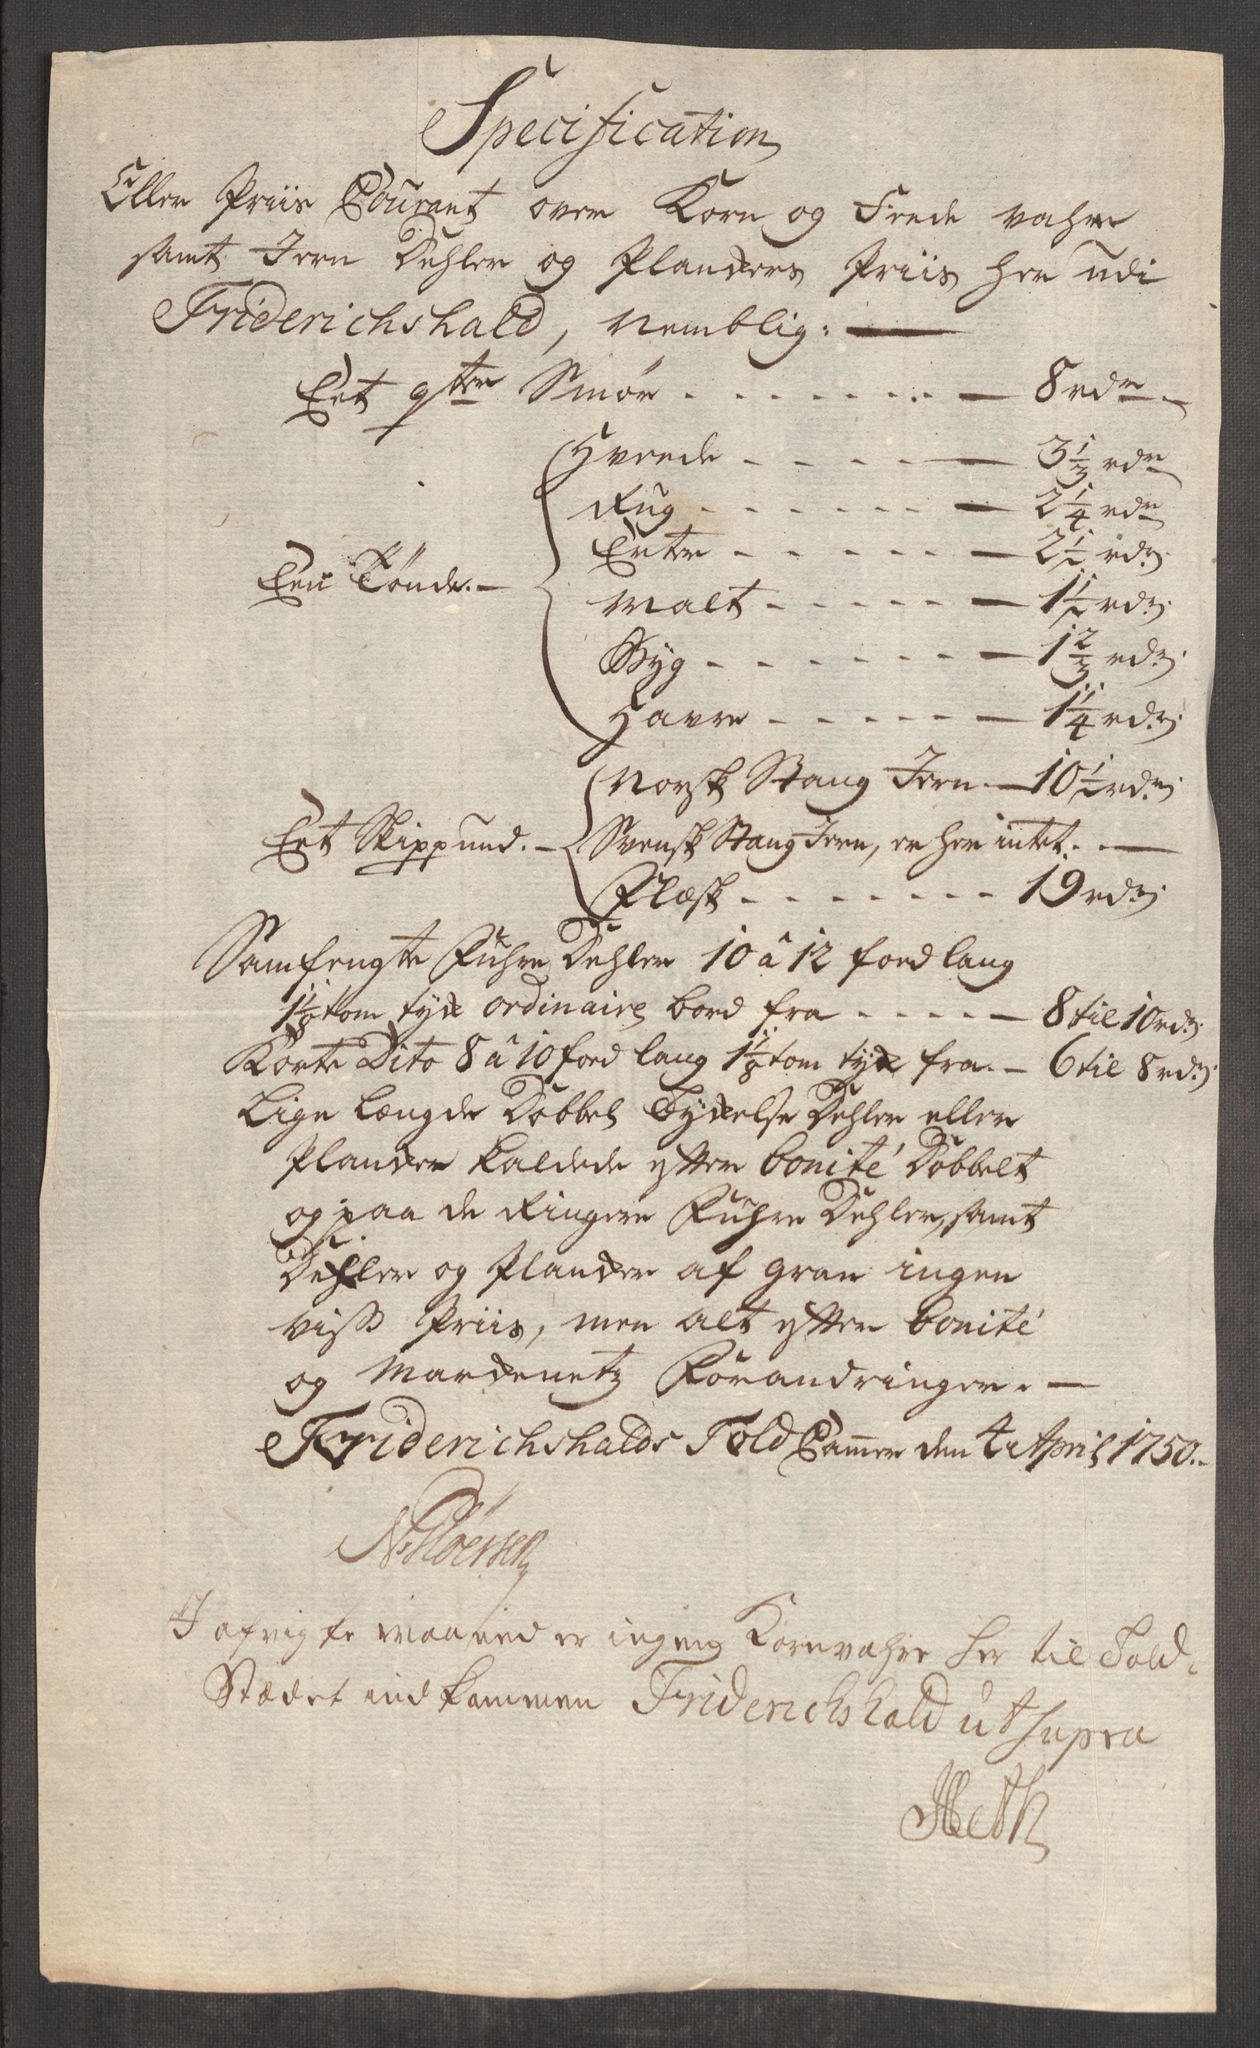 Specification
Eller Priis Courant over Korn og Fede vahre
samt Jern Dehler og Planckers Priis her udi
Friderichshald, Nemblig: —
Eet qter Smör - - - - - - - — 8 rdr —
Hvede - - - - — 3 1/3 rdr
Rug - - - - - - — 2 1/4 rdr
Erter - - - - - — 2 1/2 rdr.
Een Tönde. —
Malt - - - - - — 1 1/2 rdr.
Byg - - - - - - — 1 2/3 rdr.
Havre - - - - - — 1 1/4 rdr.
Norsk Stang Jern — 10 1/2 rdr.
Eet Skippund. — Svensk Stang Jern, er her intet. - —
Flæsk - - - - - - - 19 rdr.
Samfengte Fuhre Dehler 10 â 12 foed lang
1 1/8 tom tyck ordinaire bord fra - - - - — 8 til 10 rdr.
Korte Dito 8 â 10 foed lang 1 1/8 tom tyck fra. — 6 til 8 rdr.
Lige Længde Dobbel Tyckelse Dehler eller
Plancker kaldede efter bonité Dobbelt
og paa de Ringere Fuhre Dehler, samt
Dehler og Plancker af gran ingen
viss Priis, men alt efter bonité
og Marckenetz Forandringer. —
Friderichshalds Told Cammer den 4 April 1750. -
I afvigte Maaned er ingen Kornvahre her til Told-
Stædet indkommen Friderichshald ut supra